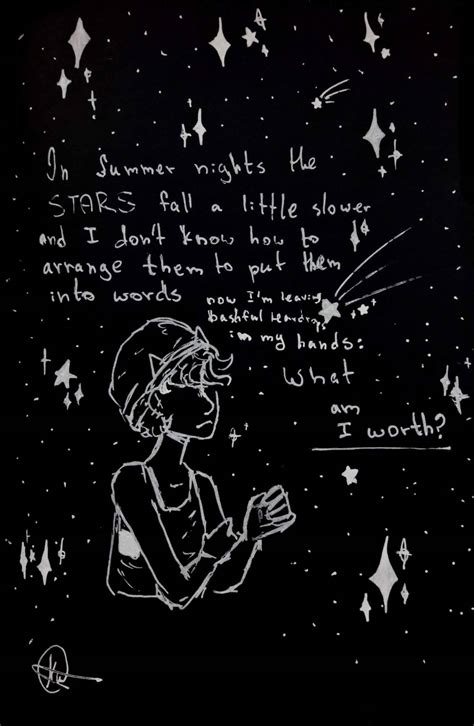 In Summer nights the
STARS fall a little slower
and I don't know how to
arrange them to put them
into words
now I'm leaving
bashful teardrops
in my hands:
What
am
I worth?